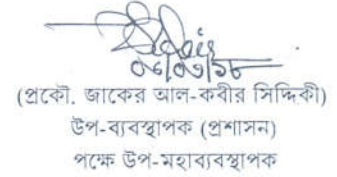 ০৮/০৩/১৮
(প্রকৌ. জাকের আল-কবীর সিদ্দিকী)
উপ-ব্যবস্থাপক (প্রশাসন)
পক্ষে উপ-মহাব্যবস্থাপক